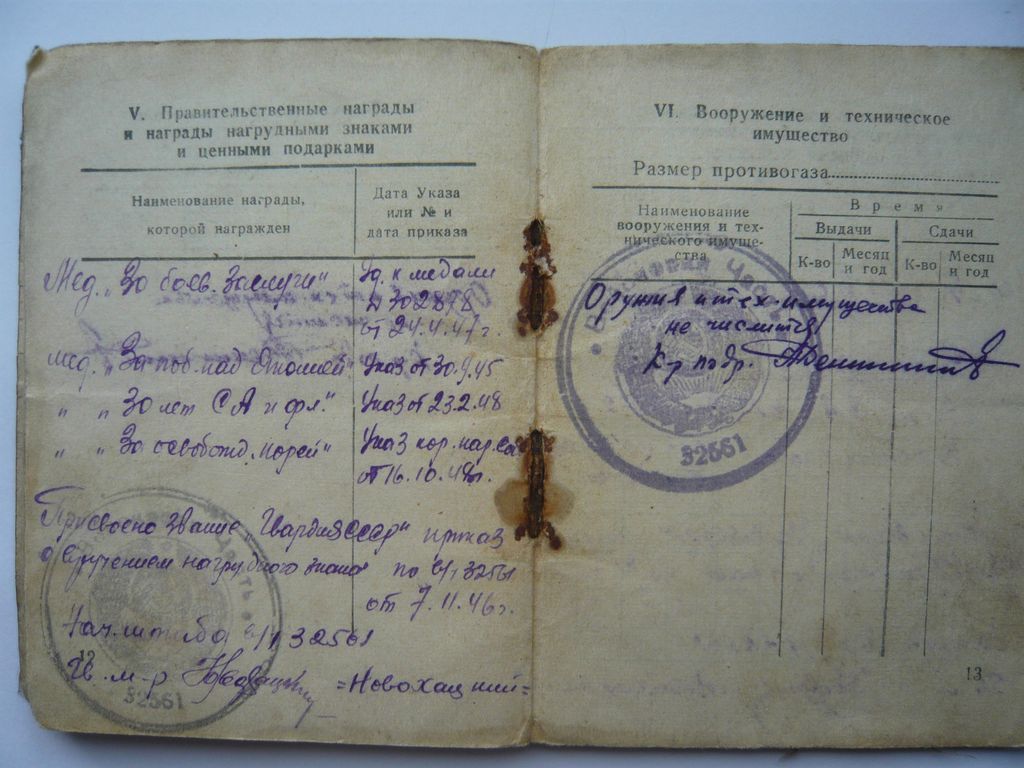 V. Правительственные награды
и награды нагрудными знаками
и ценными подарками
Наименование награды,
которой награжден
Дата Указа
или № и
дата приказа
Мед. „За боев. Заслуги"
Уд. к медали
№ 302878
от 24.4.47 г.
Мед. „За поб. над Японией"
Указ от 30.9.45
„ „ 30 лет СА и фл."
Указ от 23.2.48
„ „ За освобожд. Кореи"
Указ
от 16.10.48г.
Присвоено звание „Гвардия СССР" приказ
с вручением нагрудного знака по в/ч 32561
от 7.11.46г.
Нач. штаба в/ч 32561
Гв. м-р
=Новохацкий=
12
32561
VI. Вооружение и техническое
имущество
Размер противогаза
Наименование
вооружения и тех-
нического имуще-
ства
Время
Выдачи
Сдачи
К-во
Месяц
и год
К-во
Месяц
и год
Войсковая Часть
Оружия и тех. имущества
не числится
К-р подр.
32561
13